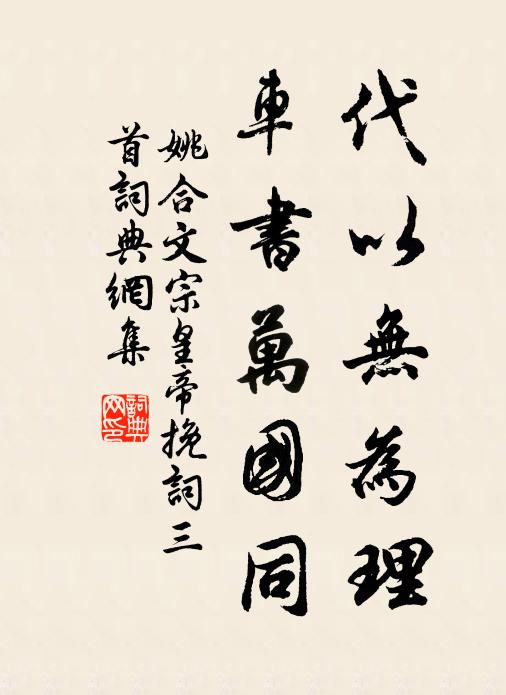 代以無為理
車書萬國同
姚合文宗皇帝挽詞三
首詞典網集
詞典
网印